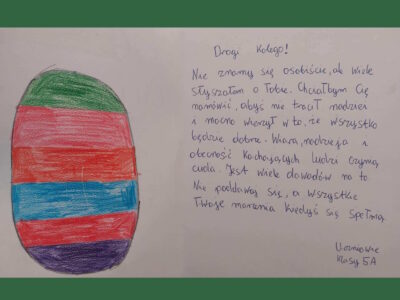 Drogi Kolego!
Nie znamy się osobiście, ale wiele
słyszałem o Tobie. Chciałbym Cię
namówić, abyś nie tracił nadziei
i mocno wierzył w to, że wszystko
będzie dobrze. Wiara, nadzieja i
obecność kochających ludzi czynią
cuda. Jest wiele dowodów na to.
Nie poddawaj się, a wszystkie
Twoje marzenia kiedyś się spełnią.
Uczniowie
klasy 5A